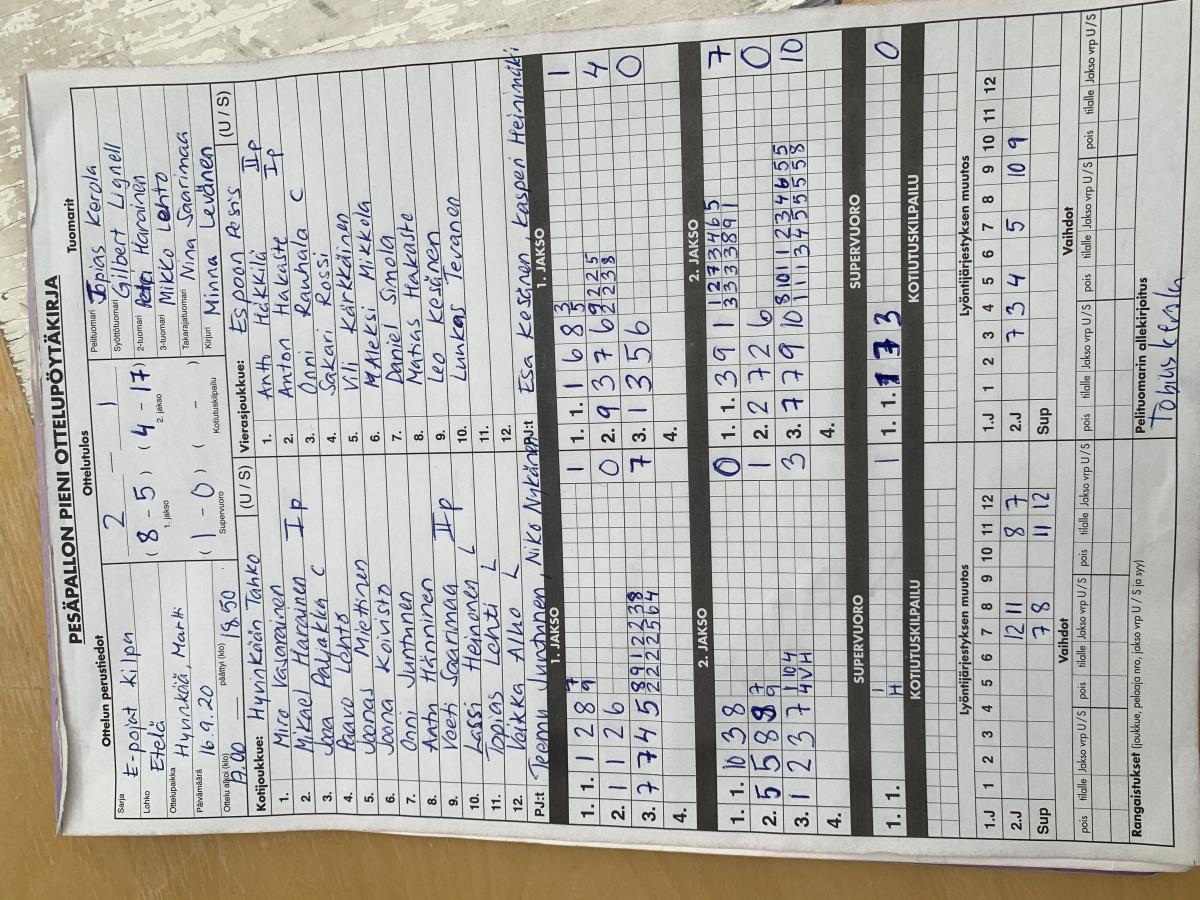 PESÄPALLON PIENI OTTELUPÖYTÄKIRJA
Ottelun perustiedot
Sarja E-pojat Kilpa
Lohko Etelä
Ottelupaikka Hyvinkää, Martti
Päivämäärä 16.9.20
Ottelu alkoi (klo) 17.00 päättyi (klo) 18.50
Ottelutulos
2 — 1
(8 - 5) (4 - 17)
1. jakso 2. jakso
(1 - 0) ( - )
Supervuoro Kotiutuskilpailu
Tuomarit
Pelituomari Topias Kerola
Syöttötuomari Gilbert Lignell
2-tuomari Harainen
3-tuomari Mikko Lehto
Takarajatuomari Nina Saarimaa
Kirjuri Minna Levänen
Kotijoukkue: Hyvinkään Tahko (U / S)
1. Miro Vasarainen
2. Mikael Harainen I p
3. Jaa Paljakka C
4. Paavo Lehto
5. Joonas Miettinen
6. Joona Koivisto
7. Onni Juntunen
8. Antti Hänninen
9. Veeti Saarimaa II p
10. Lassi Heinonen L
11. Topias Lehti L
12. Veikka Alho L
PJ:t Teemu Juntunen, Niko Nykänen
Vierasjoukkue: Espoon Pesis (U / S)
1. Antti Häkkilä II p
2. Anton Hakaste I p
3. Onni Rauhala C
4. Sakari Rossi
5. Vili Kärkkäinen
6. Aleksi Mikkola
7. Daniel Simola
8. Matias Hakaste
9. Leo Kesänen
10. Luukas Tevanen
11.
12.
PJ:t Esa Kesänen, Kasperi Heinimäki
1. JAKSO
1. 1. 1 2 8 7 9 1
2. 1 1 2 6 0
3. 7 7 4 5 8 9 1 2 2 2 3 8 7
2 2 2 2 2 5 6 4
4.
1. JAKSO
1. 1. 1 6 8 3 5 1
2. 9 3 7 6 9 2 2 5 4
2 2 3 8
3. 1 3 5 6 0
4.
2. JAKSO
1. 1. 10 3 8 0
2. 5 5 8 8 7 9 1
3. 1 2 3 7 1 10 4 3
4 V H
4.
2. JAKSO
1. 1. 3 9 1 1 2 7 3 4 6 5 7
3 3 3 3 8 9 1
2. 2 7 2 6 0
3. 7 7 9 10 8 10 1 1 2 3 4 6 5 5 10
1 1 1 3 4 5 5 5 5 8
4.
SUPERVUORO
1. 1. 1 H 1
SUPERVUORO
1. 1. 1 7 3 3 0
KOTIUTUSKILPAILU
KOTIUTUSKILPAILU
Lyöntijärjestyksen muutos
1 2 3 4 5 6 7 8 9 10 11 12
1.J
2.J 12 11 8 7
Sup 7 8 11 12
Lyöntijärjestyksen muutos
1 2 3 4 5 6 7 8 9 10 11 12
1.J
2.J 7 3 4 5 10 9
Sup
Vaihdot
pois tilalle Jakso vrp U / S pois tilalle Jakso vrp U / S pois tilalle Jakso vrp U / S
Vaihdot
pois tilalle Jakso vrp U / S pois tilalle Jakso vrp U / S pois tilalle Jakso vrp U / S
Rangaistukset (joukkue, pelaaja nro, jakso vrp U / S ja syy)
Pelituomarin allekirjoitus